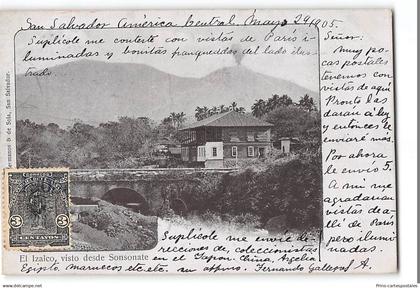 San Salvador América Central. Mayo 24/905
Suplícole me conteste con vistas de Paris i-
luminadas y bonitas franqueadas del lado ilus-
trado
Señor:
Muy po-
cas postales
tenemos con
vistas de aquí
Pronto las
daran á ley
y entonces le
enviaré más
Por ahora
le envío 5.
A mi me
agradarian
vistas de a-
lli de Paris
pero ilumi-
nadas.
Suplícole me envie di-
recciones de coleccionistas
en el Japon. China, Argelia
Egipto Marruecos etc. etc. su affmo. Fernando Gallegos A.
Hermanos & de Sola, San Salvador.
3 3
CENTAVOS
El Izalco, visto desde Sonsonate